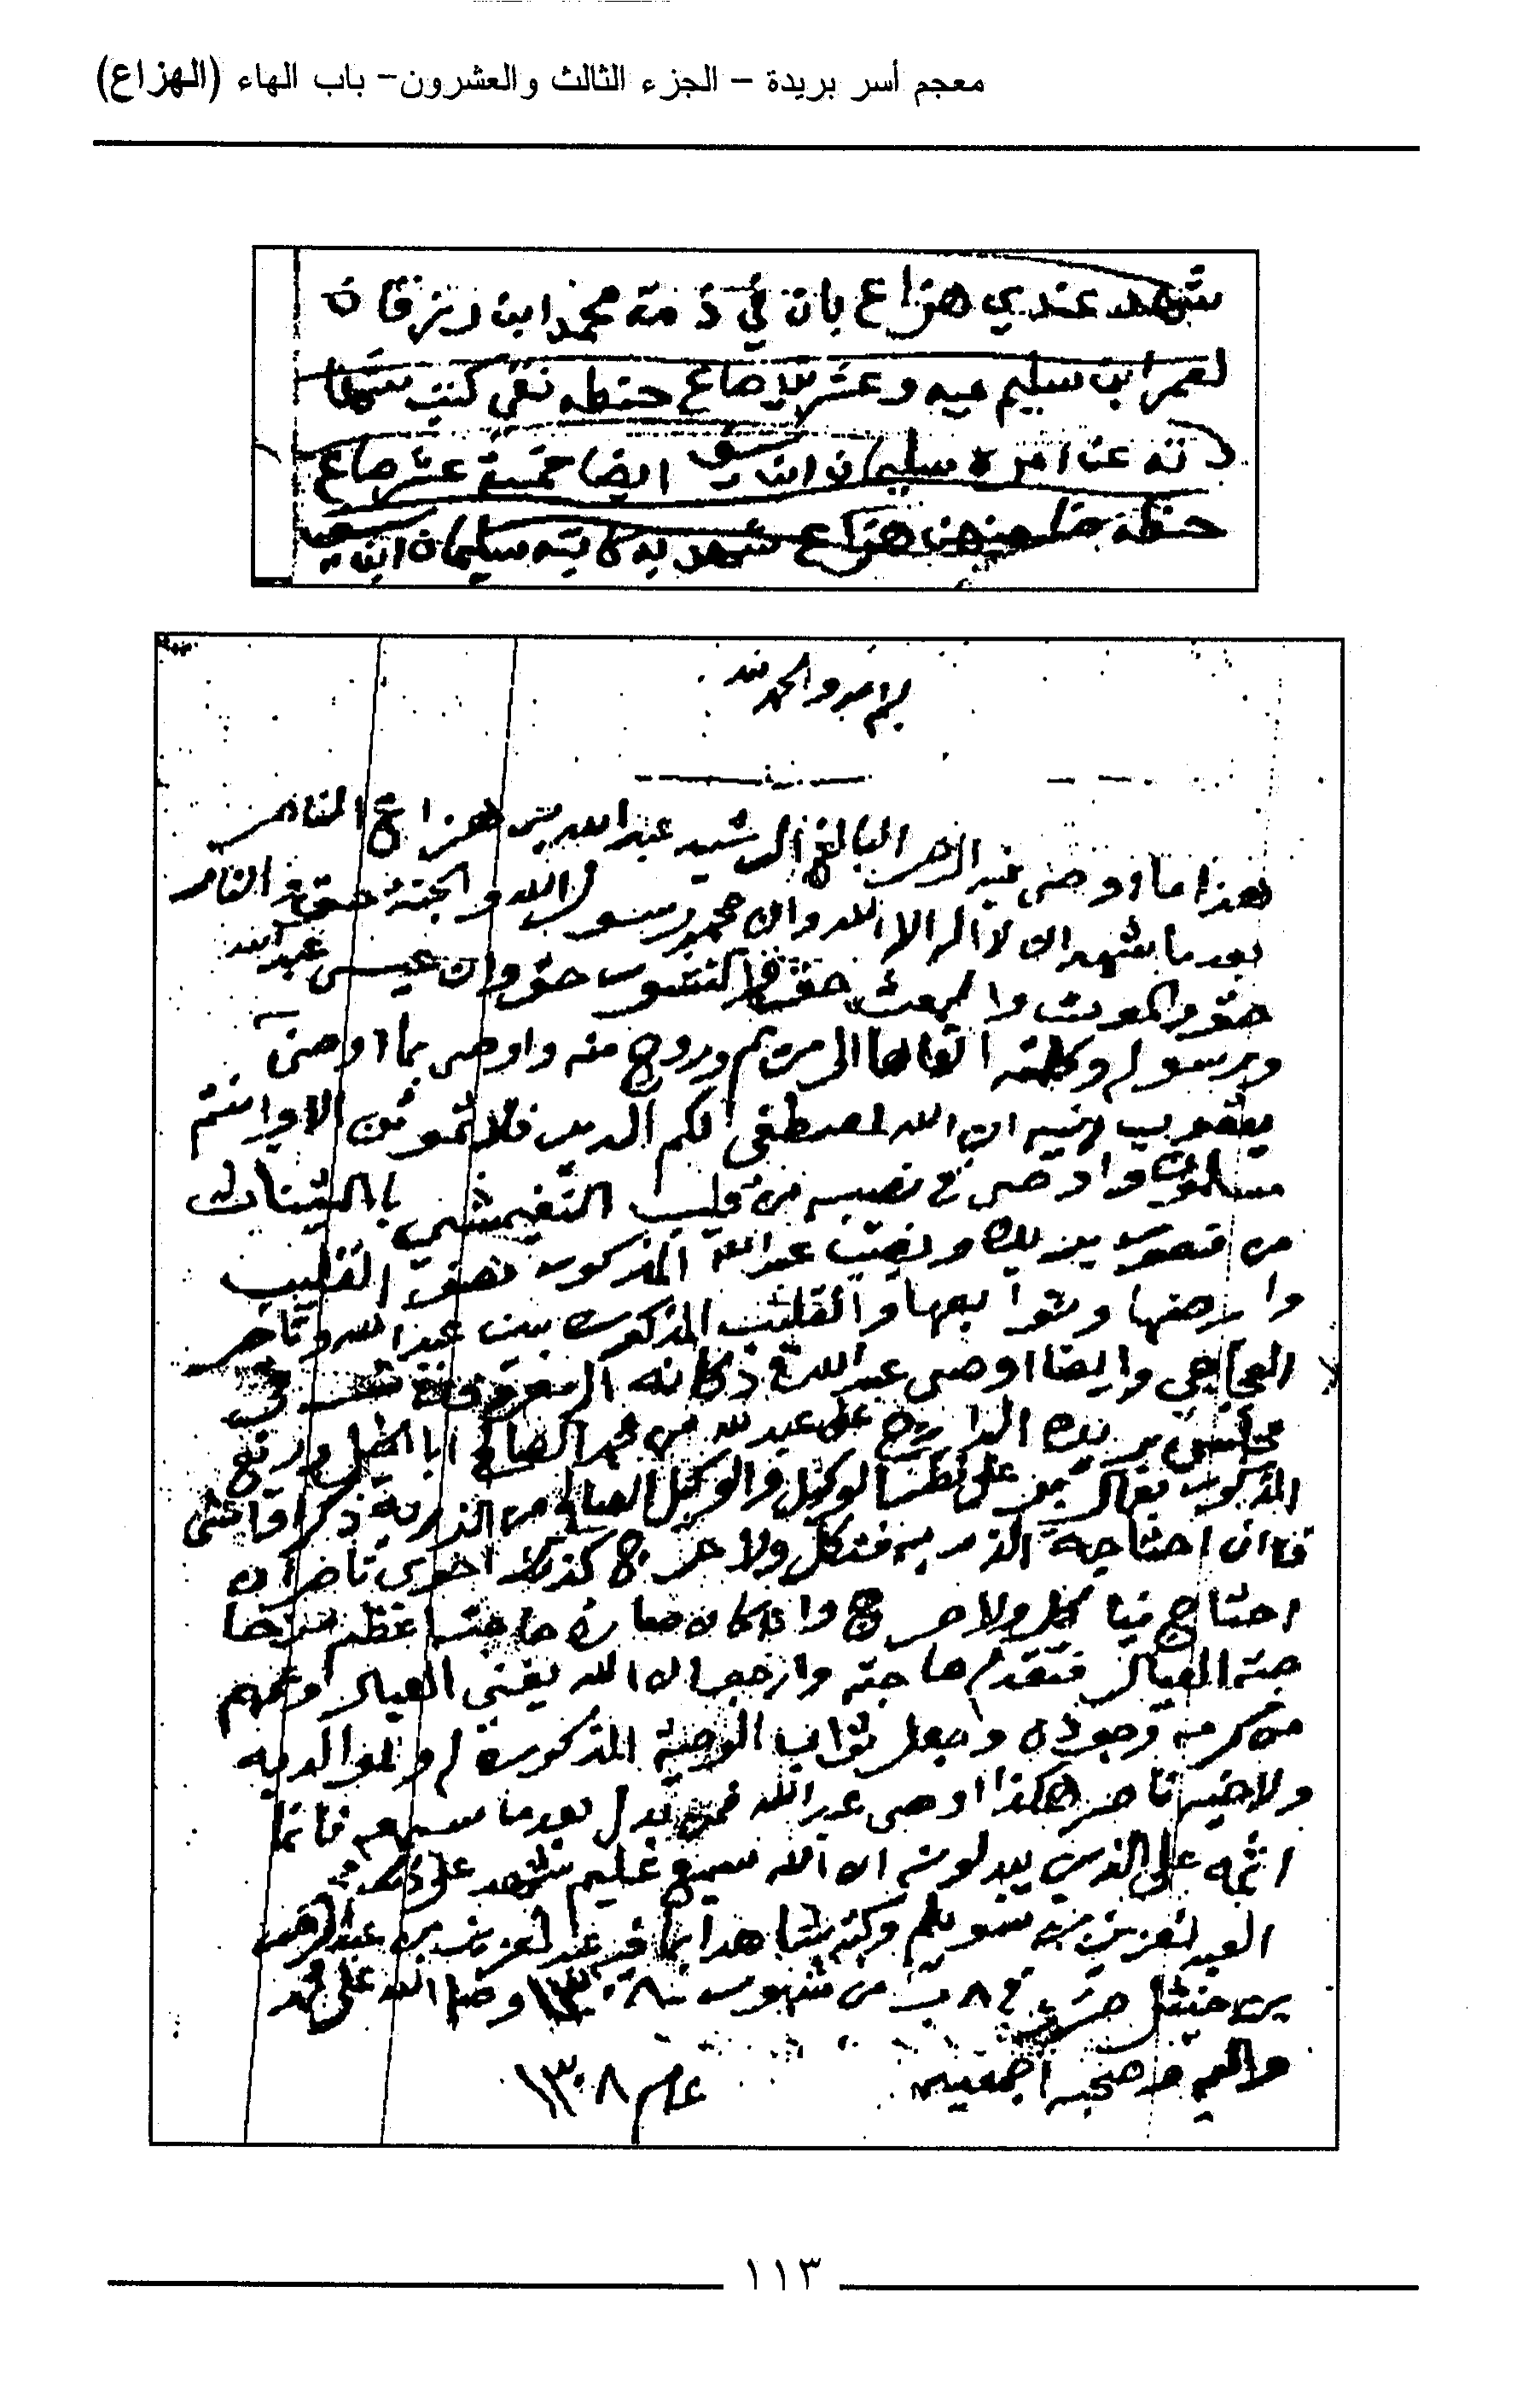 معجم أسر بريدة – الجزء الثالث والعشرون– باب الهاء (الهزاع)
شهد عندي هزاع بان في ذمة محمد ابن رزقان
لعمر ابن سليم ميه وعشرين صاع حنطه نقي كتب شها
دته عن امره سليمان ابن سيف ايضا خمسة عشر صاع
حنطة هزاع شهد به كاتبه سليمان ابن سيف
والحمد لله
هذا ما اوصى فيه البالغ الرشيد عبدالله بن هزاع الناصر
بعدما شهد ان لا اله الا الله وان محمد رسول الله والجنة حق والنار
حق والموت والبعث حق والنشور حق وان عيسى عبدالله
ورسوله وكلمته القاها الى مريم وروح منه واوصى بما اوصى
يعقوب بنيه ان الله اصطفى لكم الدين فلا تموتن الا وانتم
مسلمون واوصى في نصيبه من قليب النغيمشي
من بريده ونصيب عبدالله المذكور نصف القليب
وارضها وتوابعها والقليب المذكوره بين عبدالله وناصر
العجاجي وايضا اوصى عبدالله في دكانه المعروفة في
مجلس بريده الدارج على عبدالله من محمد الصالح ابا الخيل وريع
المذكور على نظر الوكيل والوكيل الصالح من الذريه ذكر او انثى
فان احتاجة الذريه فتاكل ولا حرج كذلك اخوي ناصر ان
احتاج فياكل ولا حرج وان كان صارة حاجته اعظم من حا
جة العيال فتقدم حاجته وارجو ان الله يغني العيال وعمهم
من كرمه وجوده وجعل ثواب الوصية المذكورة له ولوالديه
ولاخيه ناصر هكذا اوصى عبدالله فمن بدل بعدما سمعه فانما
اثمه على الذين يبدلونه ان الله سميع عليم شهد على ذلك
العبدلعزيز بن سويلم وكتبه شاهدا بما فيه عبدلعزيز بن
بن حنيشل حرر في ٨ من شهور سنة ١٣٠٨ وصلى الله على محمد
واله وصحبه اجمعين
عام ١٣٠٨
١١٣